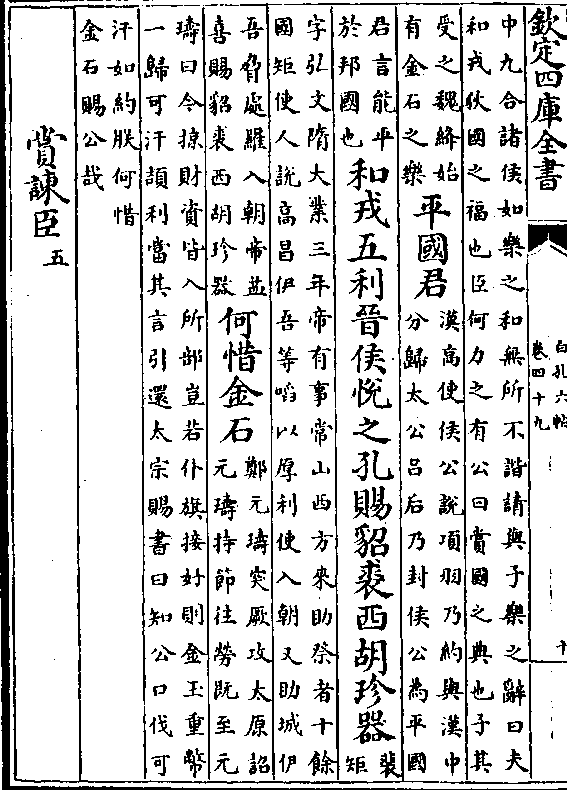 欽定四庫全書
白孔六帖
卷四十九
十
中九合諸侯如樂之和無所不諧請與子樂之辭曰夫
和戎狄國之福也臣何力之有公曰賞國之典也子其
受之魏絳始
有金石之樂
平國君
漢高使侯公說項羽乃約與漢中
分歸太公呂后乃封侯公為平國
君言能平
於邦國也
和戎五利晉侯悅之孔賜貂裘西胡珍器
裴
矩
字弘文隋大業三年帝有事常山西方來助祭者十餘
國矩使人說高昌伊吾等啗以厚利使入朝又助城伊
吾脅處羅入朝帝並
喜賜貂裘西胡珍器
何惜金石
鄭元璹突厥攻太原詔
元璹持節往勞既至元
璹曰今掠財資皆入所部豈若仆旗接好則金玉重幣
一歸可汗頡利當其言引還太宗賜書曰知公口伐可
汗如約朕何惜
金石賜公哉
賞諫臣
五